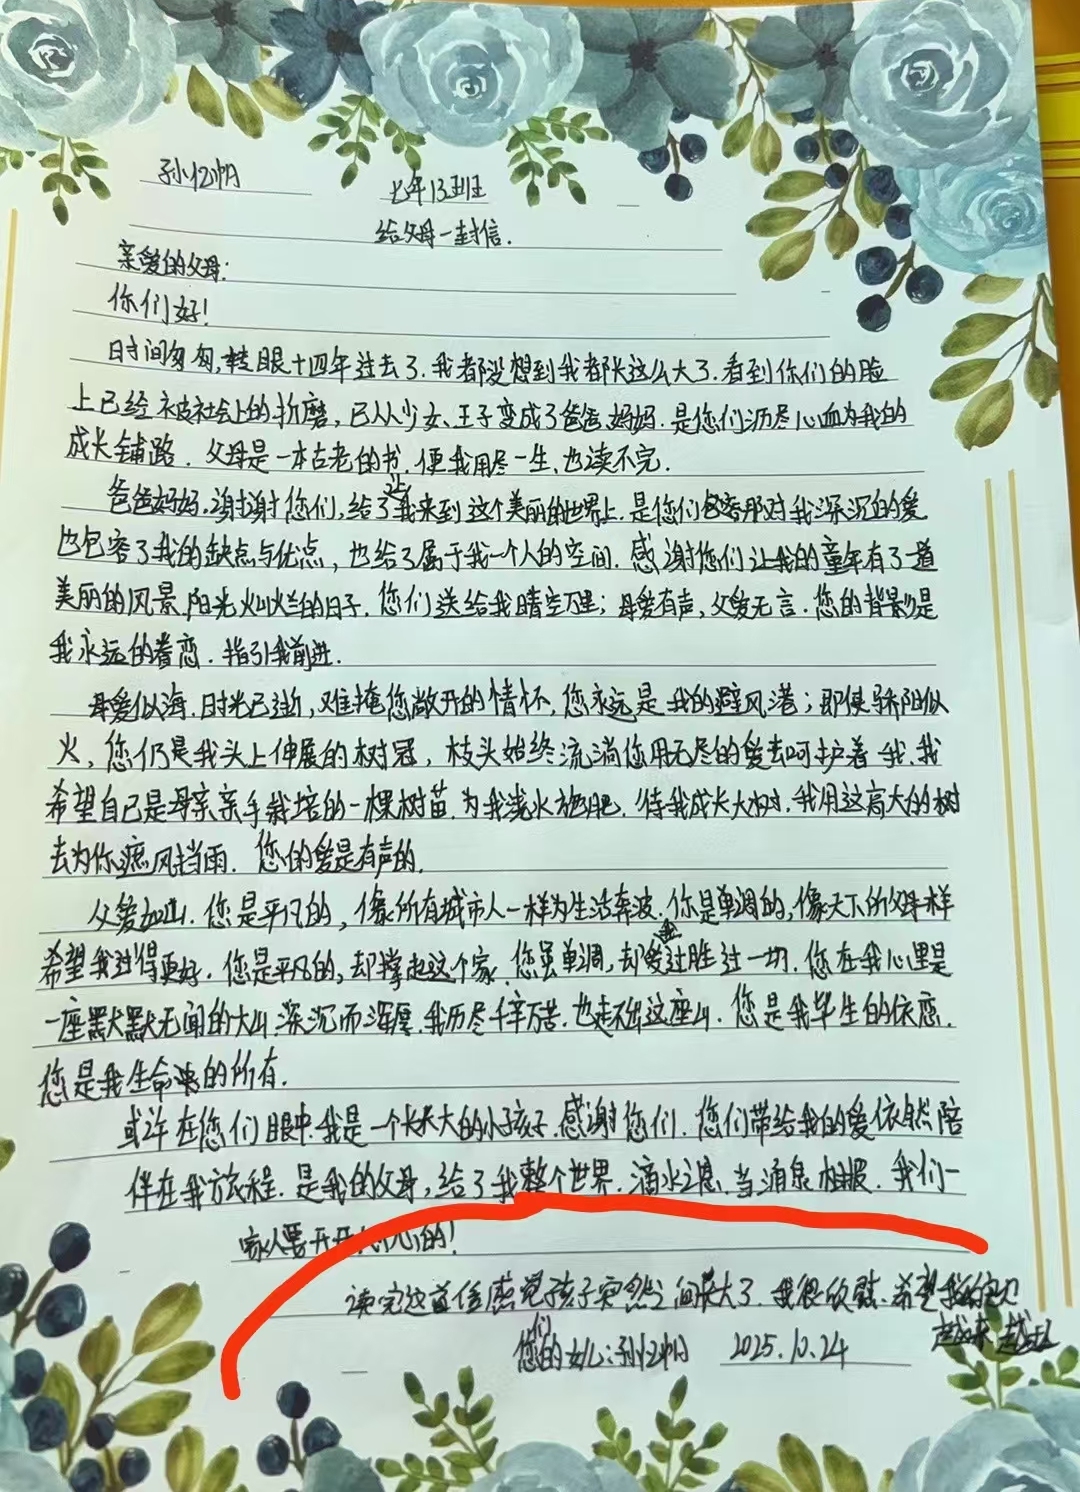 孙忆帆
七年13班
给父母一封信.
亲爱的父母:
你们好!
时间匆匆,转眼十四年过去了.我都没想到我都长这么大了.看到你们的脸
上已经被社会上的折磨,已从少女、王子变成了爸爸妈妈.是您们沥尽心血为我的
成长铺路.父母是一本古老的书,便我用尽一生、也读不完.
爸爸妈妈,谢谢您们,给了让我来到这个美丽的世界上.是您们包容那对我深沉的爱
也包容了我的缺点与优点,也给了属于我一个人的空间.感谢您们让我的童年有了一道
美丽的风景.阳光灿烂的日子,您们送给我晴空万里;母爱有声,父爱无言.您的背影是
我永远的眷恋.指引我前进.
母爱似海.时光已逝,难掩您敞开的情怀,您永远是我的避风港;即使骄阳似
火,您仍是我头上伸展的树冠,枝头始终流淌您用无尽的爱去呵护着我.我
希望自己是母亲亲手栽培的一棵树苗.为我浇水施肥.待我成长大树.我用这高大的树
去为你遮风挡雨.您的爱是有声的.
父爱如山.您是平凡的,像所有城市人一样为生活奔波.你是单调的,像天下所父母一样
希望我过得更好.您是平凡的,却撑起这个家.您虽单调,却爱过胜过一切.您在我心里是
一座默默无闻的大山.深沉而浑厚.我历尽千辛万苦.也走不出这座山.您是我毕生的依恋.
您是我生命的所有.
或许在您们眼中.我是一个长不大的小孩子.感谢您们.您们带给我的爱依然陪
伴在我旅程.是我的父母,给了我整个世界.滴水之恩.当涌泉相报.我们一
家人要开开心心的!
读完这篇信感觉孩子突然之间长大了.我很欣慰.希望我的宝贝
越来越
您们的女儿:孙忆帆 2025.10.24